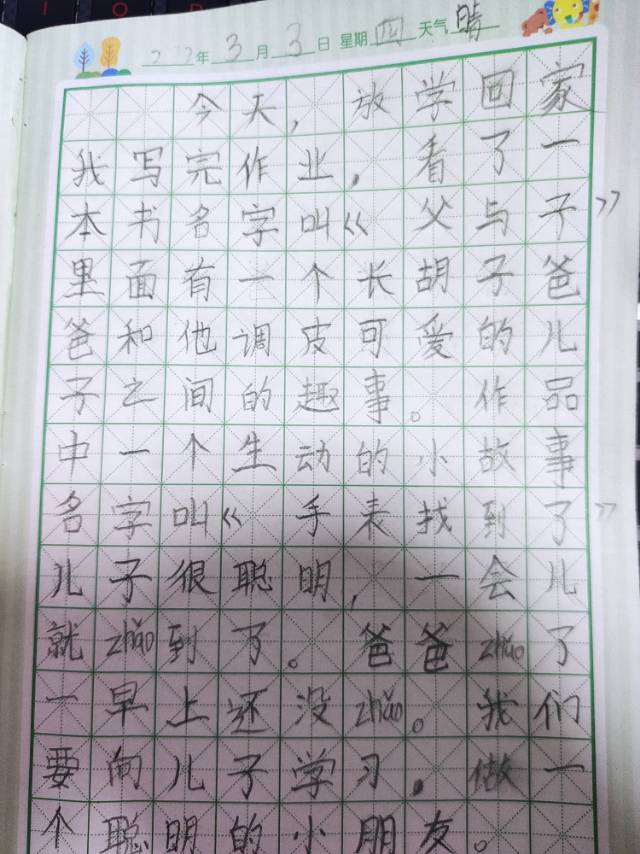 2022年3月3日 星期四 天气晴
今天，放学回家
我写完作业，看了一
本书名字叫《父与子》
里面有一个长胡子爸
爸和他调皮可爱的儿
子之间的趣事。作品
中一个生动的小故事
名字叫《手表找到了》
儿子很聪明，一会儿
就zhǎo到了。爸爸zhǎo了
一早上还没zhǎo。我们
要向儿子学习，做一
个聪明的小朋友。